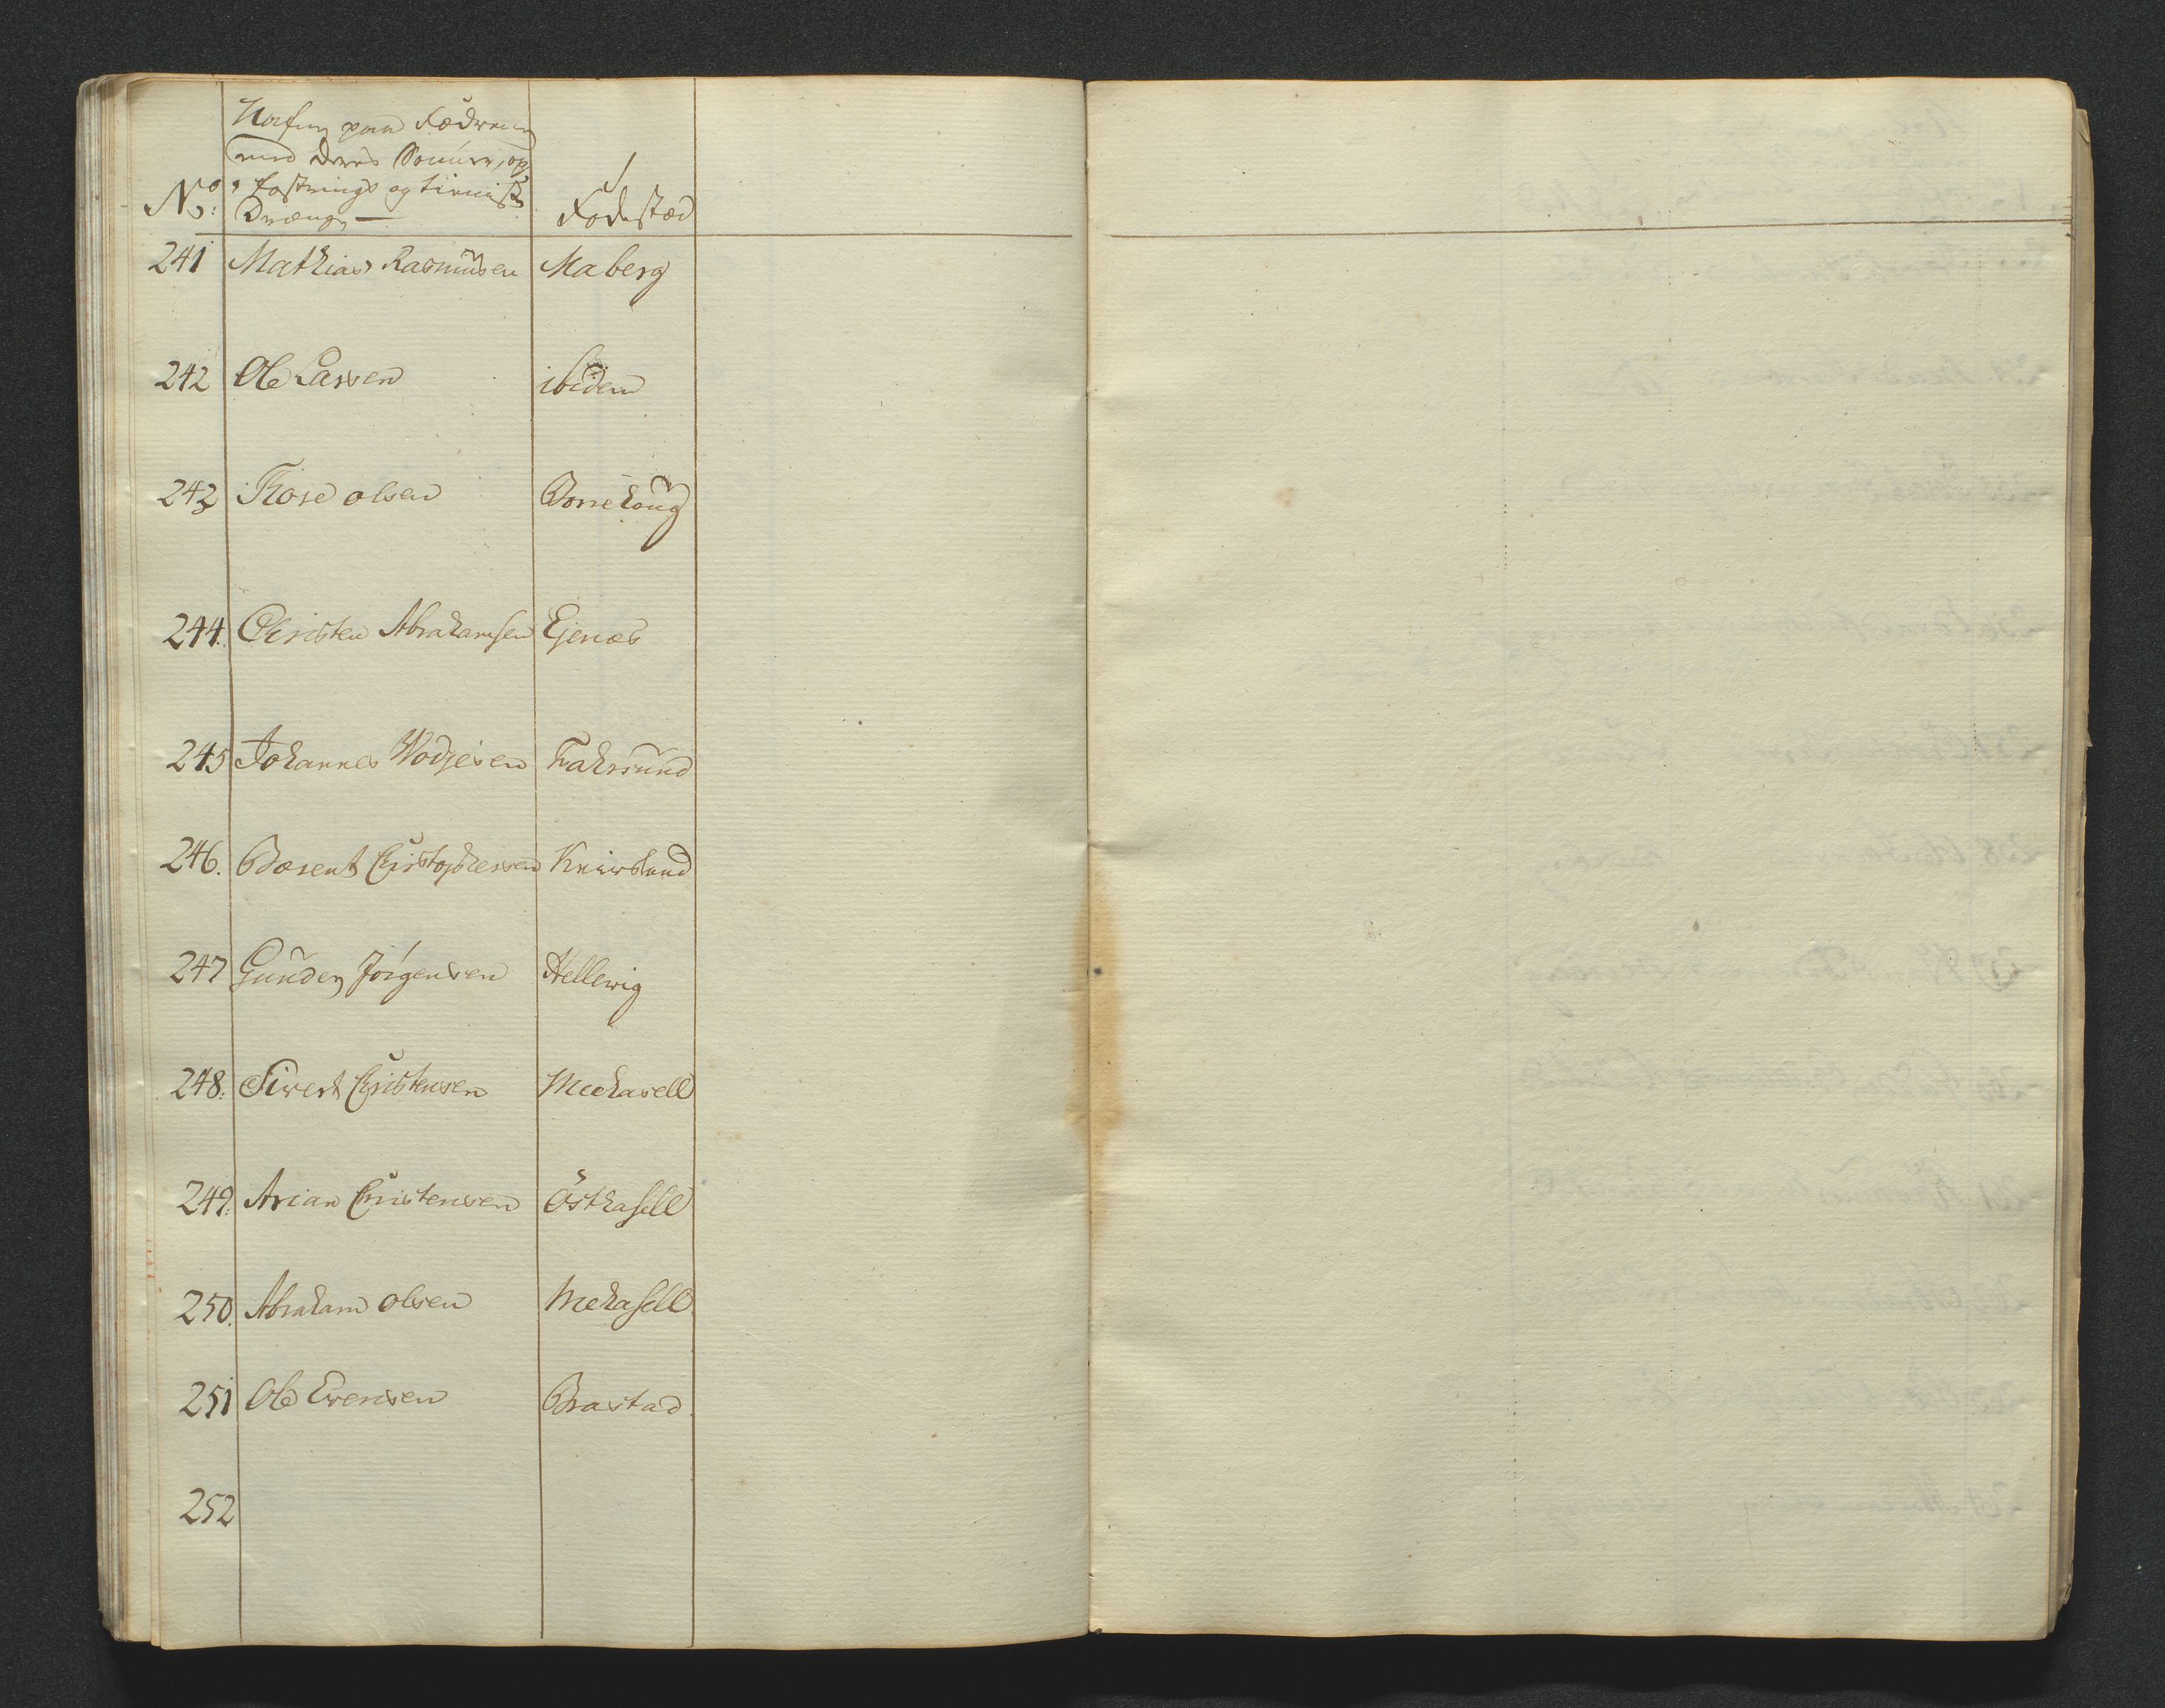 Nafn paa Fædrene
med deres Sönner, op,
N.º fostrings og tieniste
Drænge — Fødestæd
241 Mathias Rasmusen Maberg
242 Ole Larsen ibidem
243 Thore olsen Borrehoug
244. Christen Abrahamsen Ejenæs
245 Johannes Wodjesen Fahrsund
246. Barent Christophersen
247 Gunder Jörgensen Hellewig
248. Siwert Christensen Meehasell
249. Arian Christensen Östhasell
250. Abraham olsen Mehasell
251 Ole Evensen Brastad
252